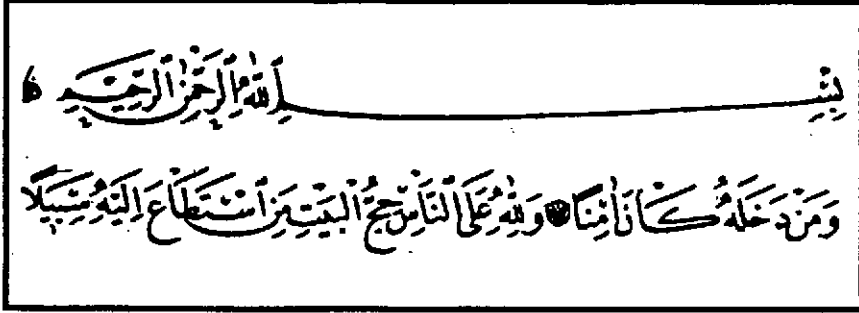 بِسْمِ اللّٰهِ الرَّحْمٰنِ الرَّحِيْمِ
وَمَنْ دَخَلَهُ كَانَ اٰمِنًا وَلِلّٰهِ عَلَى النَّاسِ حِجُّ الْبَيْتِ مَنِ اسْتَطَاعَ اِلَيْهِ سَبِيْلًا